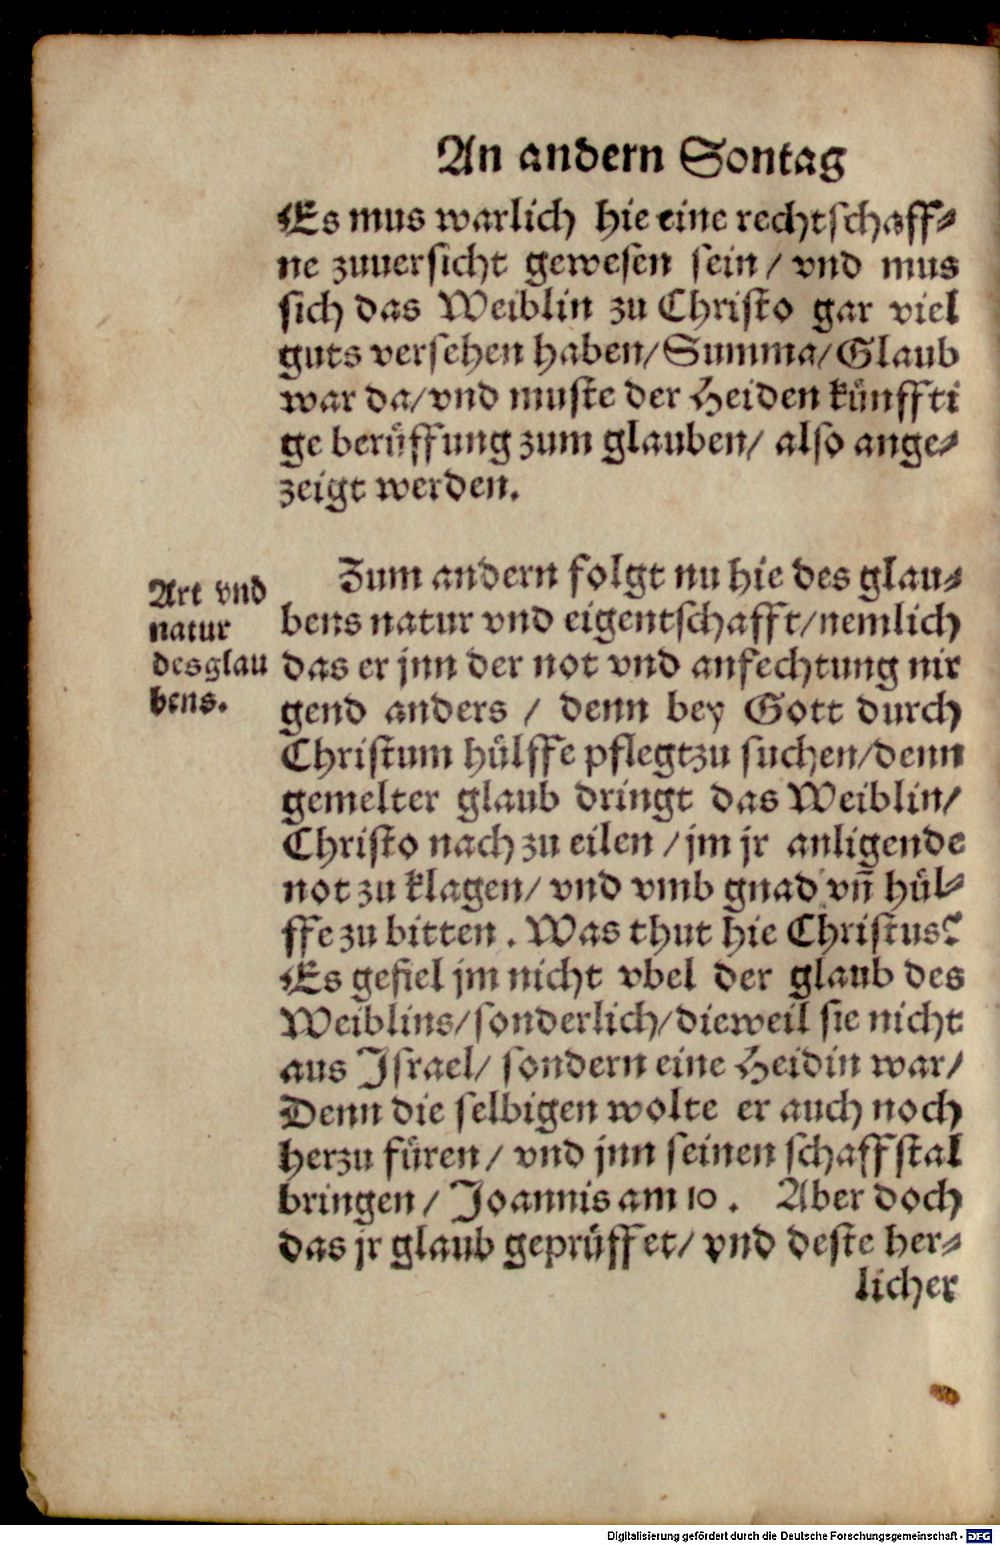 An andern Sontag
Es mus warlich hie eine rechtschaff⸗
ne zuuersicht gewesen sein / vnd mus
sich das Weiblin zu Christo gar viel
guts versehen haben/Summa/Glaub
war da/vnd muste der Heiden künffti
ge berüffung zum glauben/ also ange⸗
zeigt werden.
Zum andern folgt nu hie des glau⸗
bens natur vnd eigentschafft/nemlich
das er jnn der not vnd anfechtung nir
gend anders / denn bey Gott durch
Christum hülffe pflegtzu suchen/denn
gemelter glaub dringt das Weiblin/
Christo nach zu eilen /jm jr anligende
not zu klagen/ vnd vmb gnad vñ hül⸗
ffe zu bitten . Was thut hie Christus?
Es gefiel jm nicht vbel der glaub des
Weiblins/sonderlich/dieweil sie nicht
aus Israel/ sondern eine Heidin war/
Denn die selbigen wolte er auch noch
herzu füren / vnd jnn seinen schaffstal
bringen / Joannis am 10 . Aber doch
das jr glaub geprüffet/ vnd deste her⸗
licher
Art vnd
natur
desglau
bens.
Digitalisierung gefördert durch die Deutsche Forschungsgemeinschaft - DFG